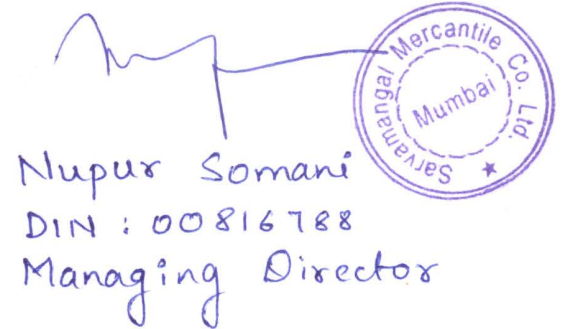 Sarvamangal Mercantile Co. Ltd.
Mumbai
Nupur Somani
DIN : 00816788
Managing Director